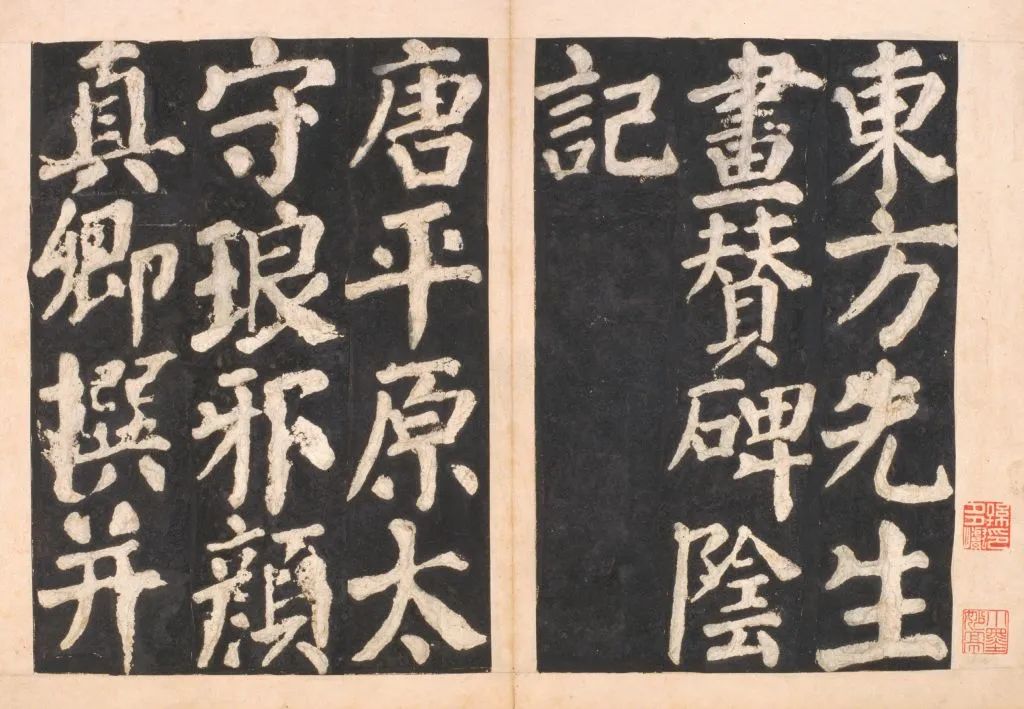 東方先生
畫贊碑陰
記
唐平原太
守琅邪顏
真卿撰并